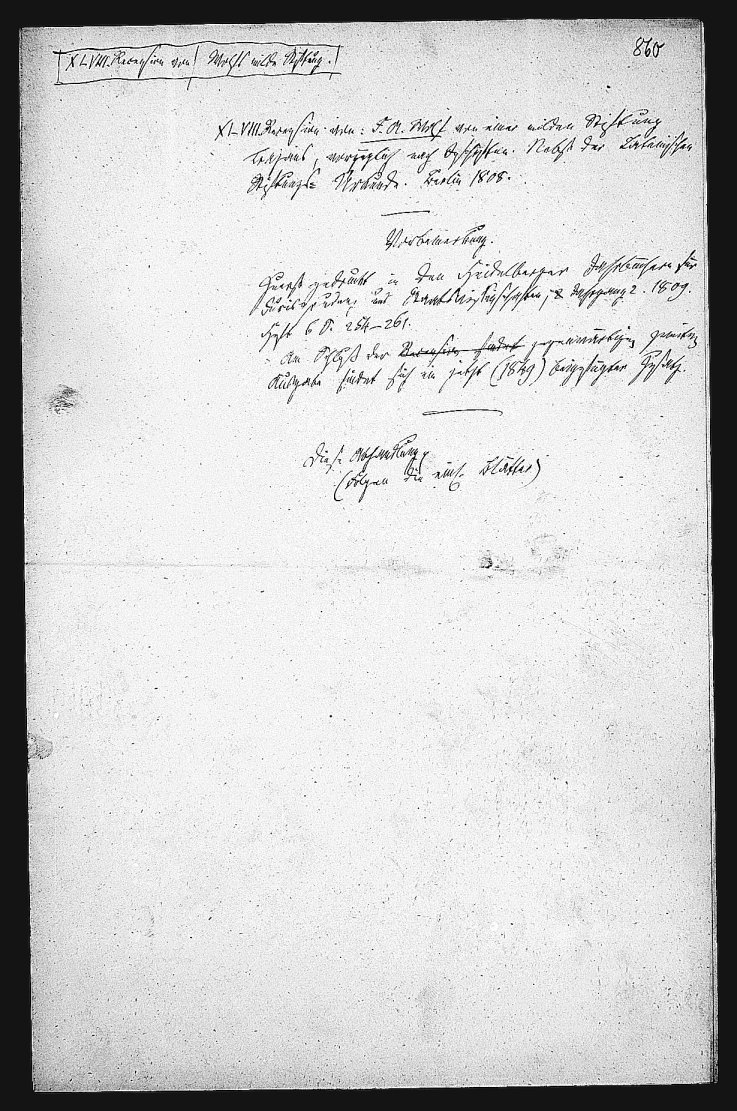 860
XLVIII. Recension von Wolfs milde Stiftung.
XLVIII. Recension von: F. A. Wolf von einer milden Stiftung
Trajans, vorzüglich nach Inschriften. Nebst der Lateinischen
Stiftungs-Urkunde. Berlin 1808.
Vorbemerkung.
Zuerst gedruckt in den Heidelberger Jahrbüchern für
Jurisprudenz und Staatswissenschaften, Jahrgang 2. 1809.
Heft 6 S. 254–261.
Am Schluß der Recension findet gegenwärtigen zweiten
Ausgabe findet sich ein jetzt (1849) beigefügter Zusatz.
Diese Abhandlung
(Folgen die Blätter)